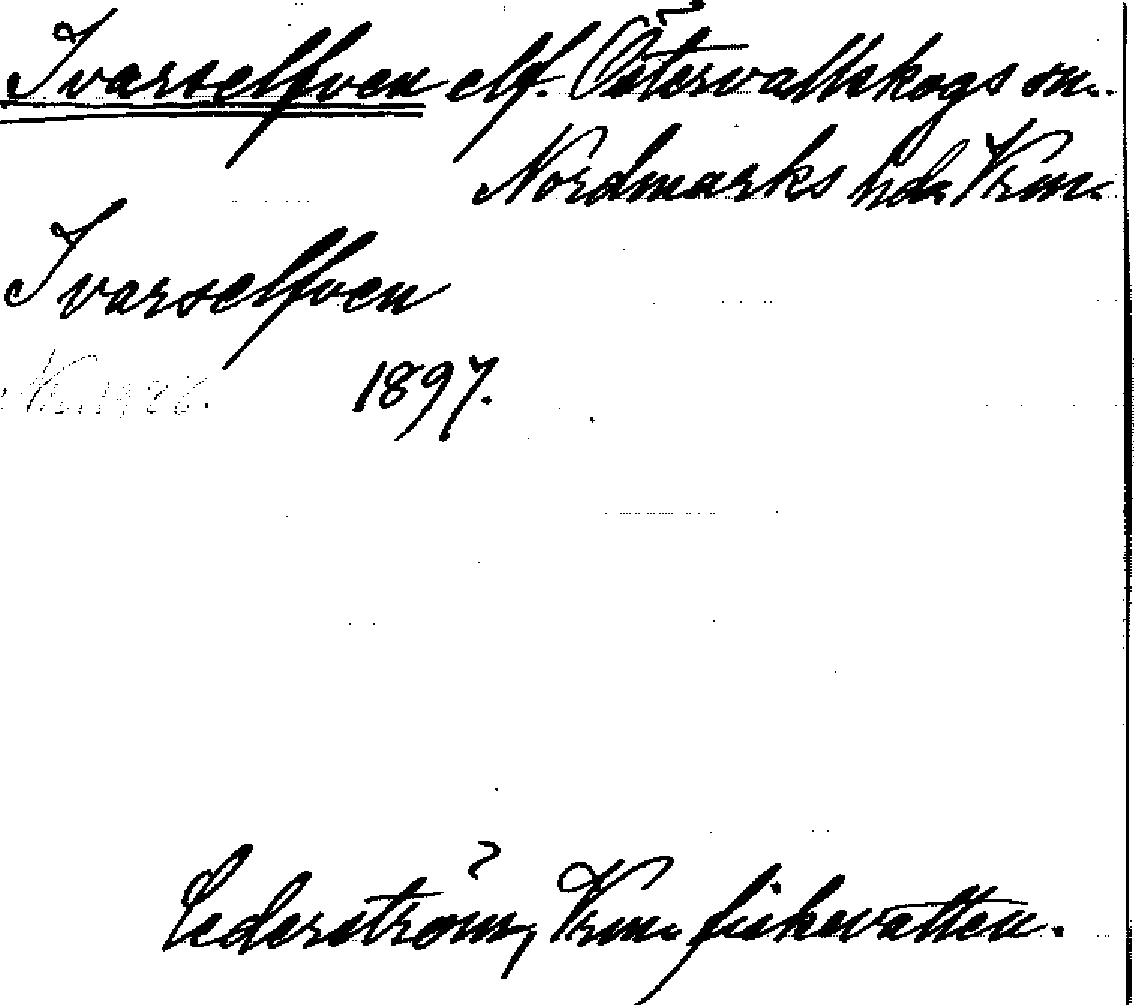 Ivarselfven elf. Östervallskogs sn.
Nordmarks hd. Vrm.
Ivarselfven
1897.
Cederström, Vrm. fiskevatten.